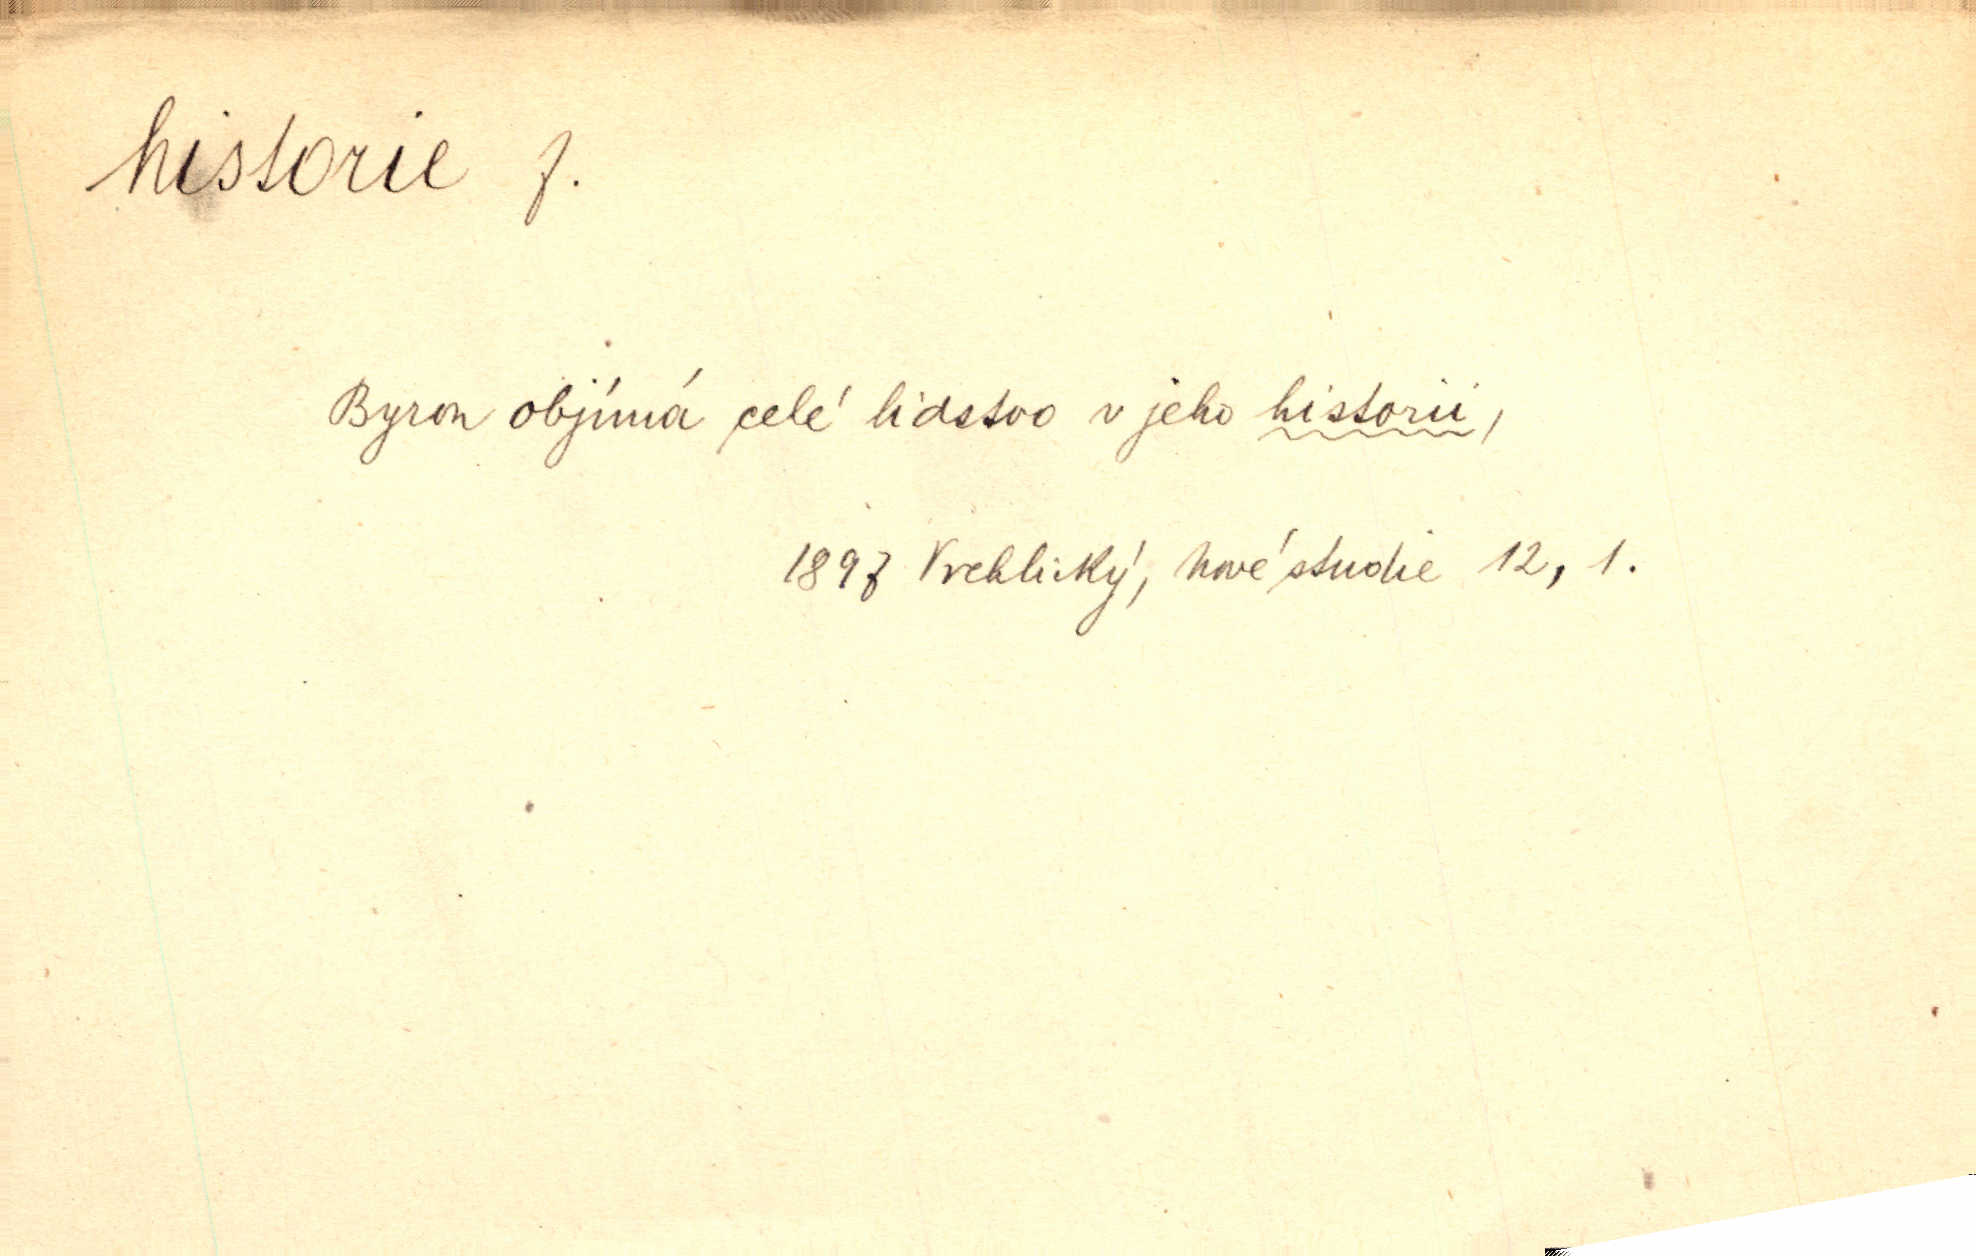 historie f.
Byron objímá celé lidstvo v jeho historii,
1897 Vrchlický, Nové studie 12, 1.